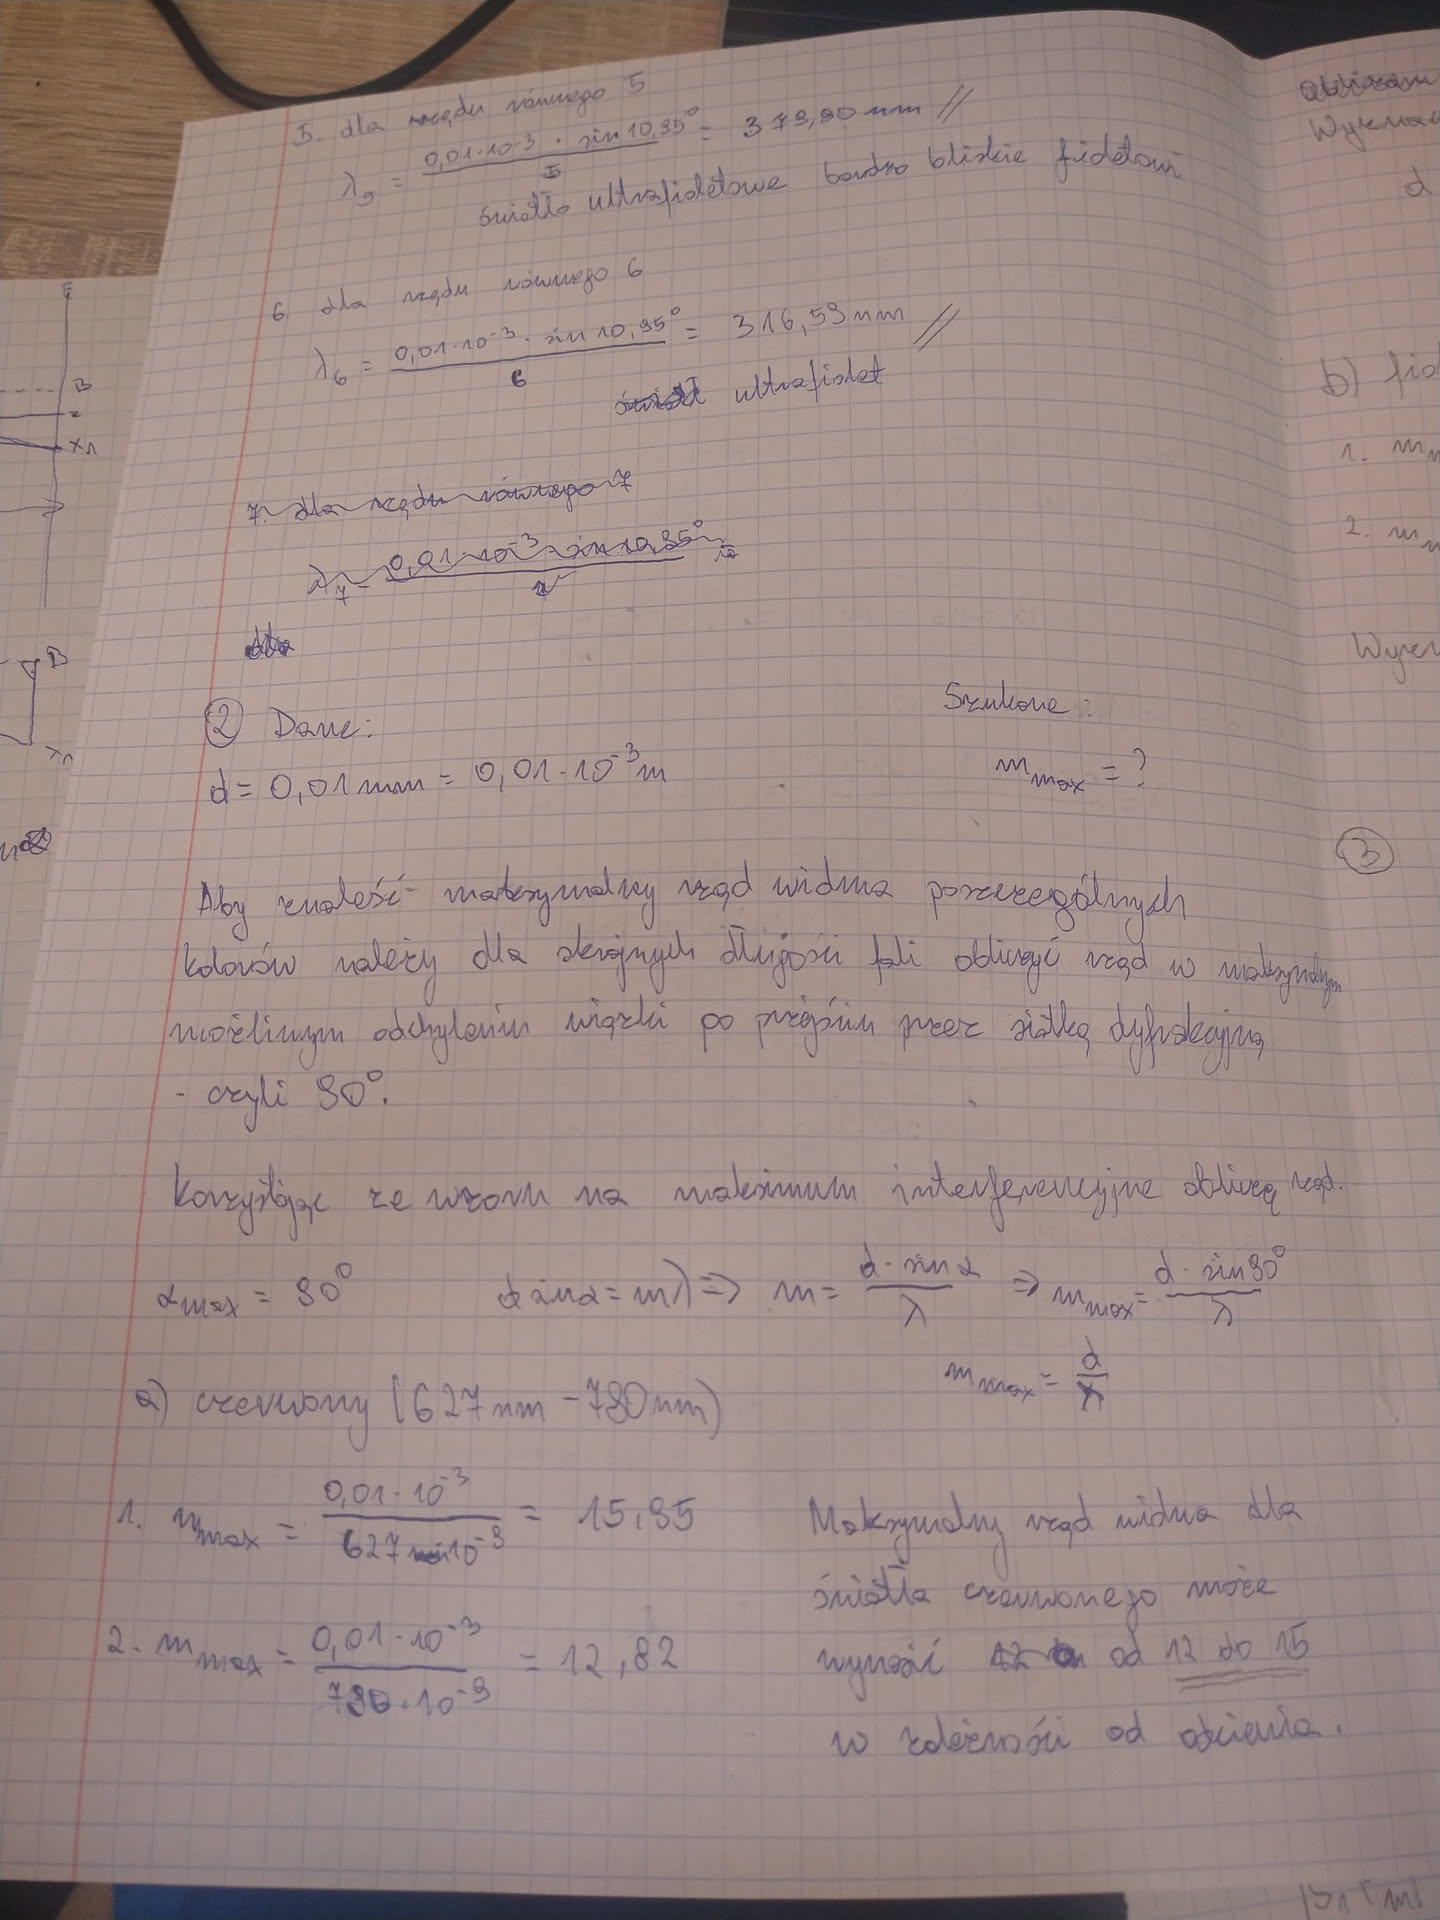 5. dla rzędu równego 5
λ₅ = (0,01·10⁻³ · sin 10,95°)/5 = 379,90 nm //
światło ultrafioletowe bardzo bliskie fioletowi
6 dla rzędu równego 6
λ₆ = (0,01·10⁻³ · sin 10,95°)/6 = 316,59 nm //
ultrafiolet
7. dla rzędu równego 7
λ₇ = (0,01·10⁻³ · sin 10,95°)/7
dla
② Dane:
Szukane:
d = 0,01 mm = 0,01·10⁻³ m
m_max = ?
Aby znaleść maksymalny rząd widma poszczególnych
kolorów należy dla skrajnych długości fali obliczyć rząd w maksymalnym
możliwym odchyleniu wiązki po przejściu przez siatkę dyfrakcyjną
- czyli 90°.
Korzystając ze wzoru na maksimum interferencyjne obliczę rząd.
α_max = 90° d sin α = mλ => m = (d · sin α)/λ => m_max = (d · sin 90°)/λ
m_max = d/λ
a) czerwony (627 nm – 780 nm)
1. m_max = (0,01·10⁻³)/(627·10⁻⁹) = 15,95
2. m_max = (0,01·10⁻³)/(780·10⁻⁹) = 12,82
Maksymalny rząd widma dla
światła czerwonego może
wynosić od 12 do 15
w zależności od odcienia.
B
x₁
B
x₁
Wyzna
d
b) fio
1. m
2. m
Wyzn
③